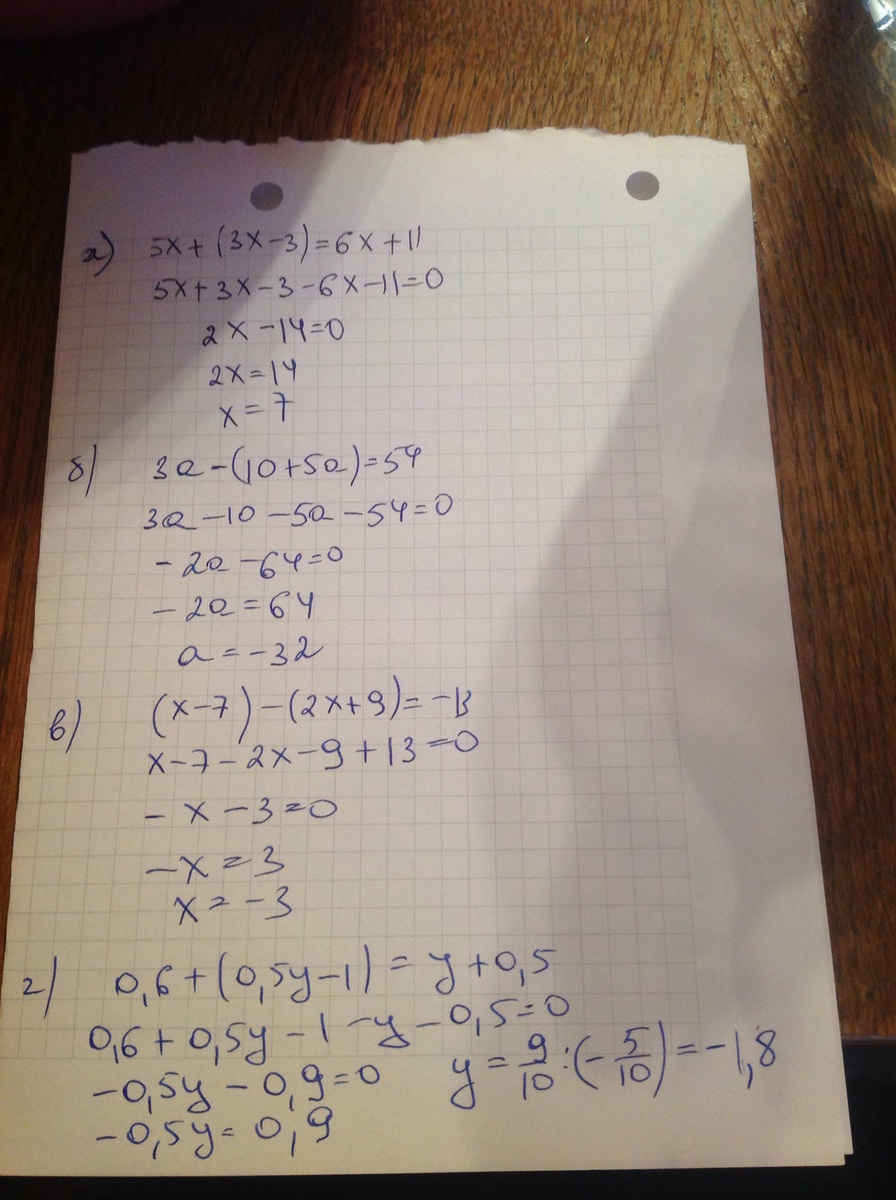 а) 5x+(3x-3)=6x+11
5x+3x-3-6x-11=0
2x-14=0
2x=14
x=7
б) 3a-(10+5a)=54
3a-10-5a-54=0
-2a-64=0
-2a=64
a=-32
в) (x-7)-(2x+9)=-13
x-7-2x-9+13=0
-x-3=0
-x=3
x=-3
г) 0,6+(0,5y-1)=y+0,5
0,6+0,5y-1-y-0,5=0
-0,5y-0,9=0
-0,5y=0,9
y=9/10:(-5/10)=-1,8